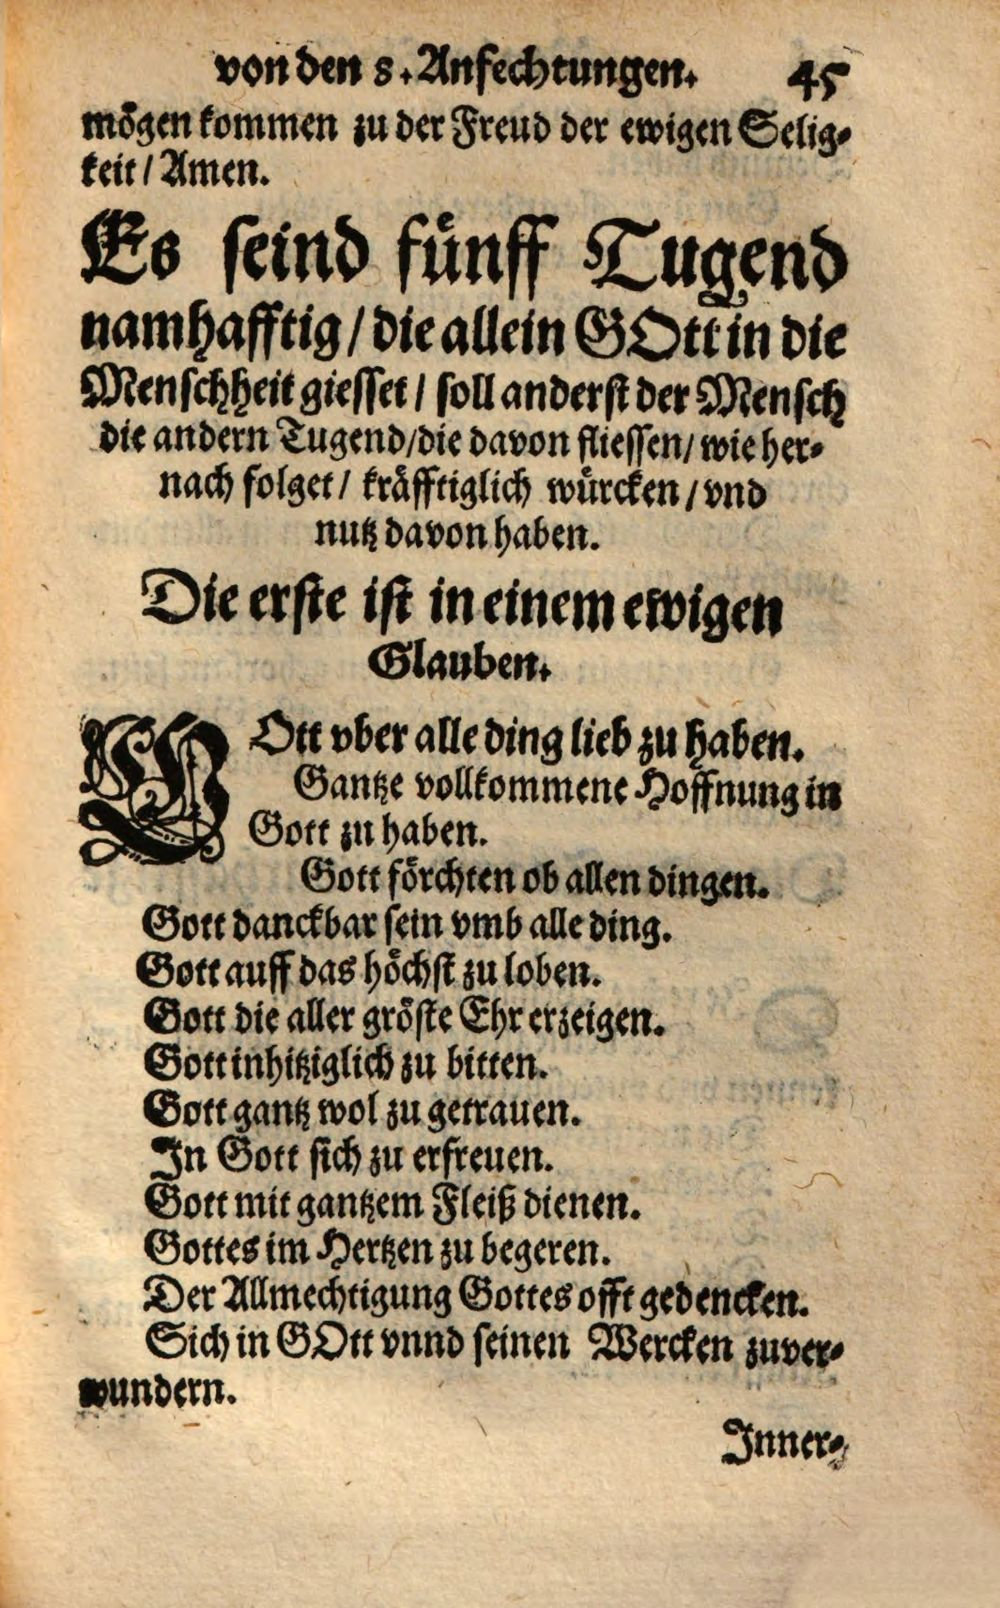 von den 8. Anfechtungen. 45
mögen kommen zu der Freud der ewigen Selig-
keit / Amen.
Es seind fünff Tugend
namhafftig / die allein GOtt in die
Menschheit giesset / soll anderst der Mensch
die andern Tugend / die davon fliessen / wie her-
nach folget / kräfftiglich würcken / vnd
nutz davon haben.
Die erste ist in einem ewigen
Glauben.
GOtt vber alle ding lieb zu haben.
Gantze vollkommene Hoffnung in
Gott zu haben.
Gott förchten ob allen dingen.
Gott danckbar sein vmb alle ding.
Gott auff das höchst zu loben.
Gott die aller gröste Ehr erzeigen.
Gott inhitziglich zu bitten.
Gott gantz wol zu getrauen.
In Gott sich zu erfreuen.
Gott mit gantzem Fleiß dienen.
Gottes im Hertzen zu begeren.
Der Allmechtigung Gottes offt gedencken.
Sich in GOtt vnnd seinen Wercken zuver-
wundern.
Inner-